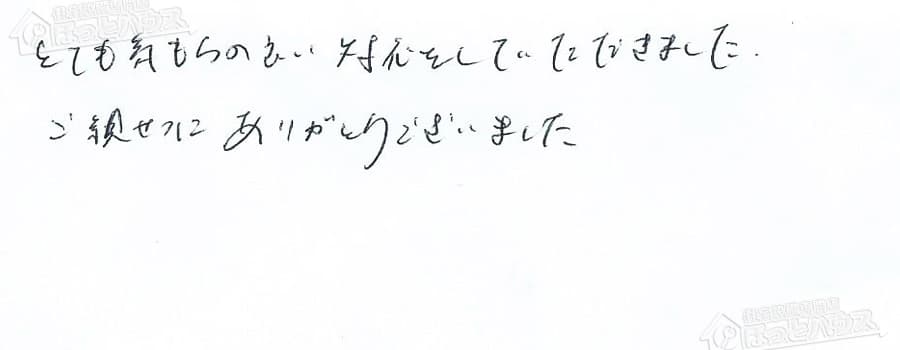 とても気もちの良い対応をしていただきました.
ご親せつに ありがとうございました
ほっとハウス
ほっとハウス